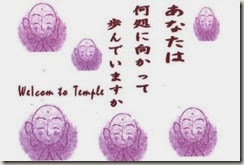 あなたは
何処に向かって
歩んでいますか
Welcom to Temple